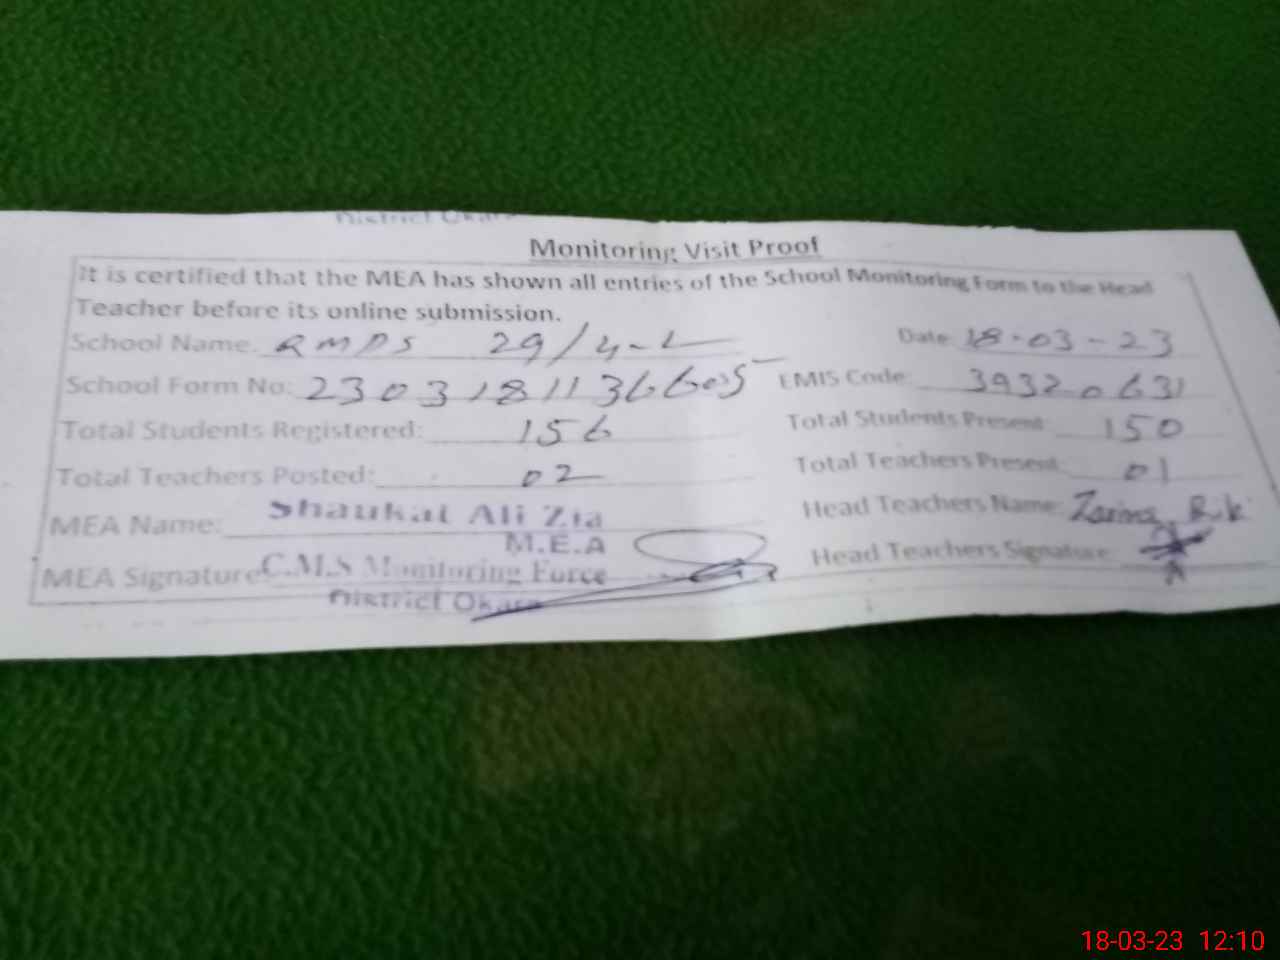 District Okara
Monitoring Visit Proof
It is certified that the MEA has shown all entries of the School Monitoring Form to the Head
Teacher before its online submission.
School Name: RMPS 29/4-L Date: 18-03-23
School Form No: 2303181136605 EMIS Code: 39320631
Total Students Registered: 156 Total Students Present: 150
Total Teachers Posted: 02 Total Teachers Present: 01
MEA Name: Shaukat Ali Zia Head Teachers Name: Zarina
M.E.A
MEA Signature: C.M.S Monitoring Force Head Teachers Signature:
District Okara
18-03-23 12:10